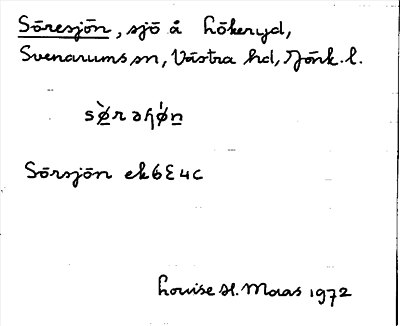 Söresjön, sjö å Hökeryd,
Svenarums sn, Västra hd, Jönk. l.
sø̀rəɧǿn
Sörsjön ek6E4c
Louise H. Maas 1972